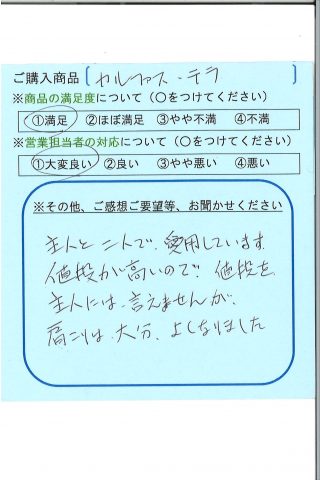 ご購入商品 [カルファス・テラ]
※商品の満足度について（○をつけてください）
①満足 ②ほぼ満足 ③やや不満 ④不満
※営業担当者の対応について（○をつけてください）
①大変良い ②良い ③やや悪い ④悪い
※その他、ご感想ご要望等、お聞かせください
主人と二人で、愛用しています。
値段が高いので、値段を
主人には、言えませんが、
肩こりは、大分、よくなりました